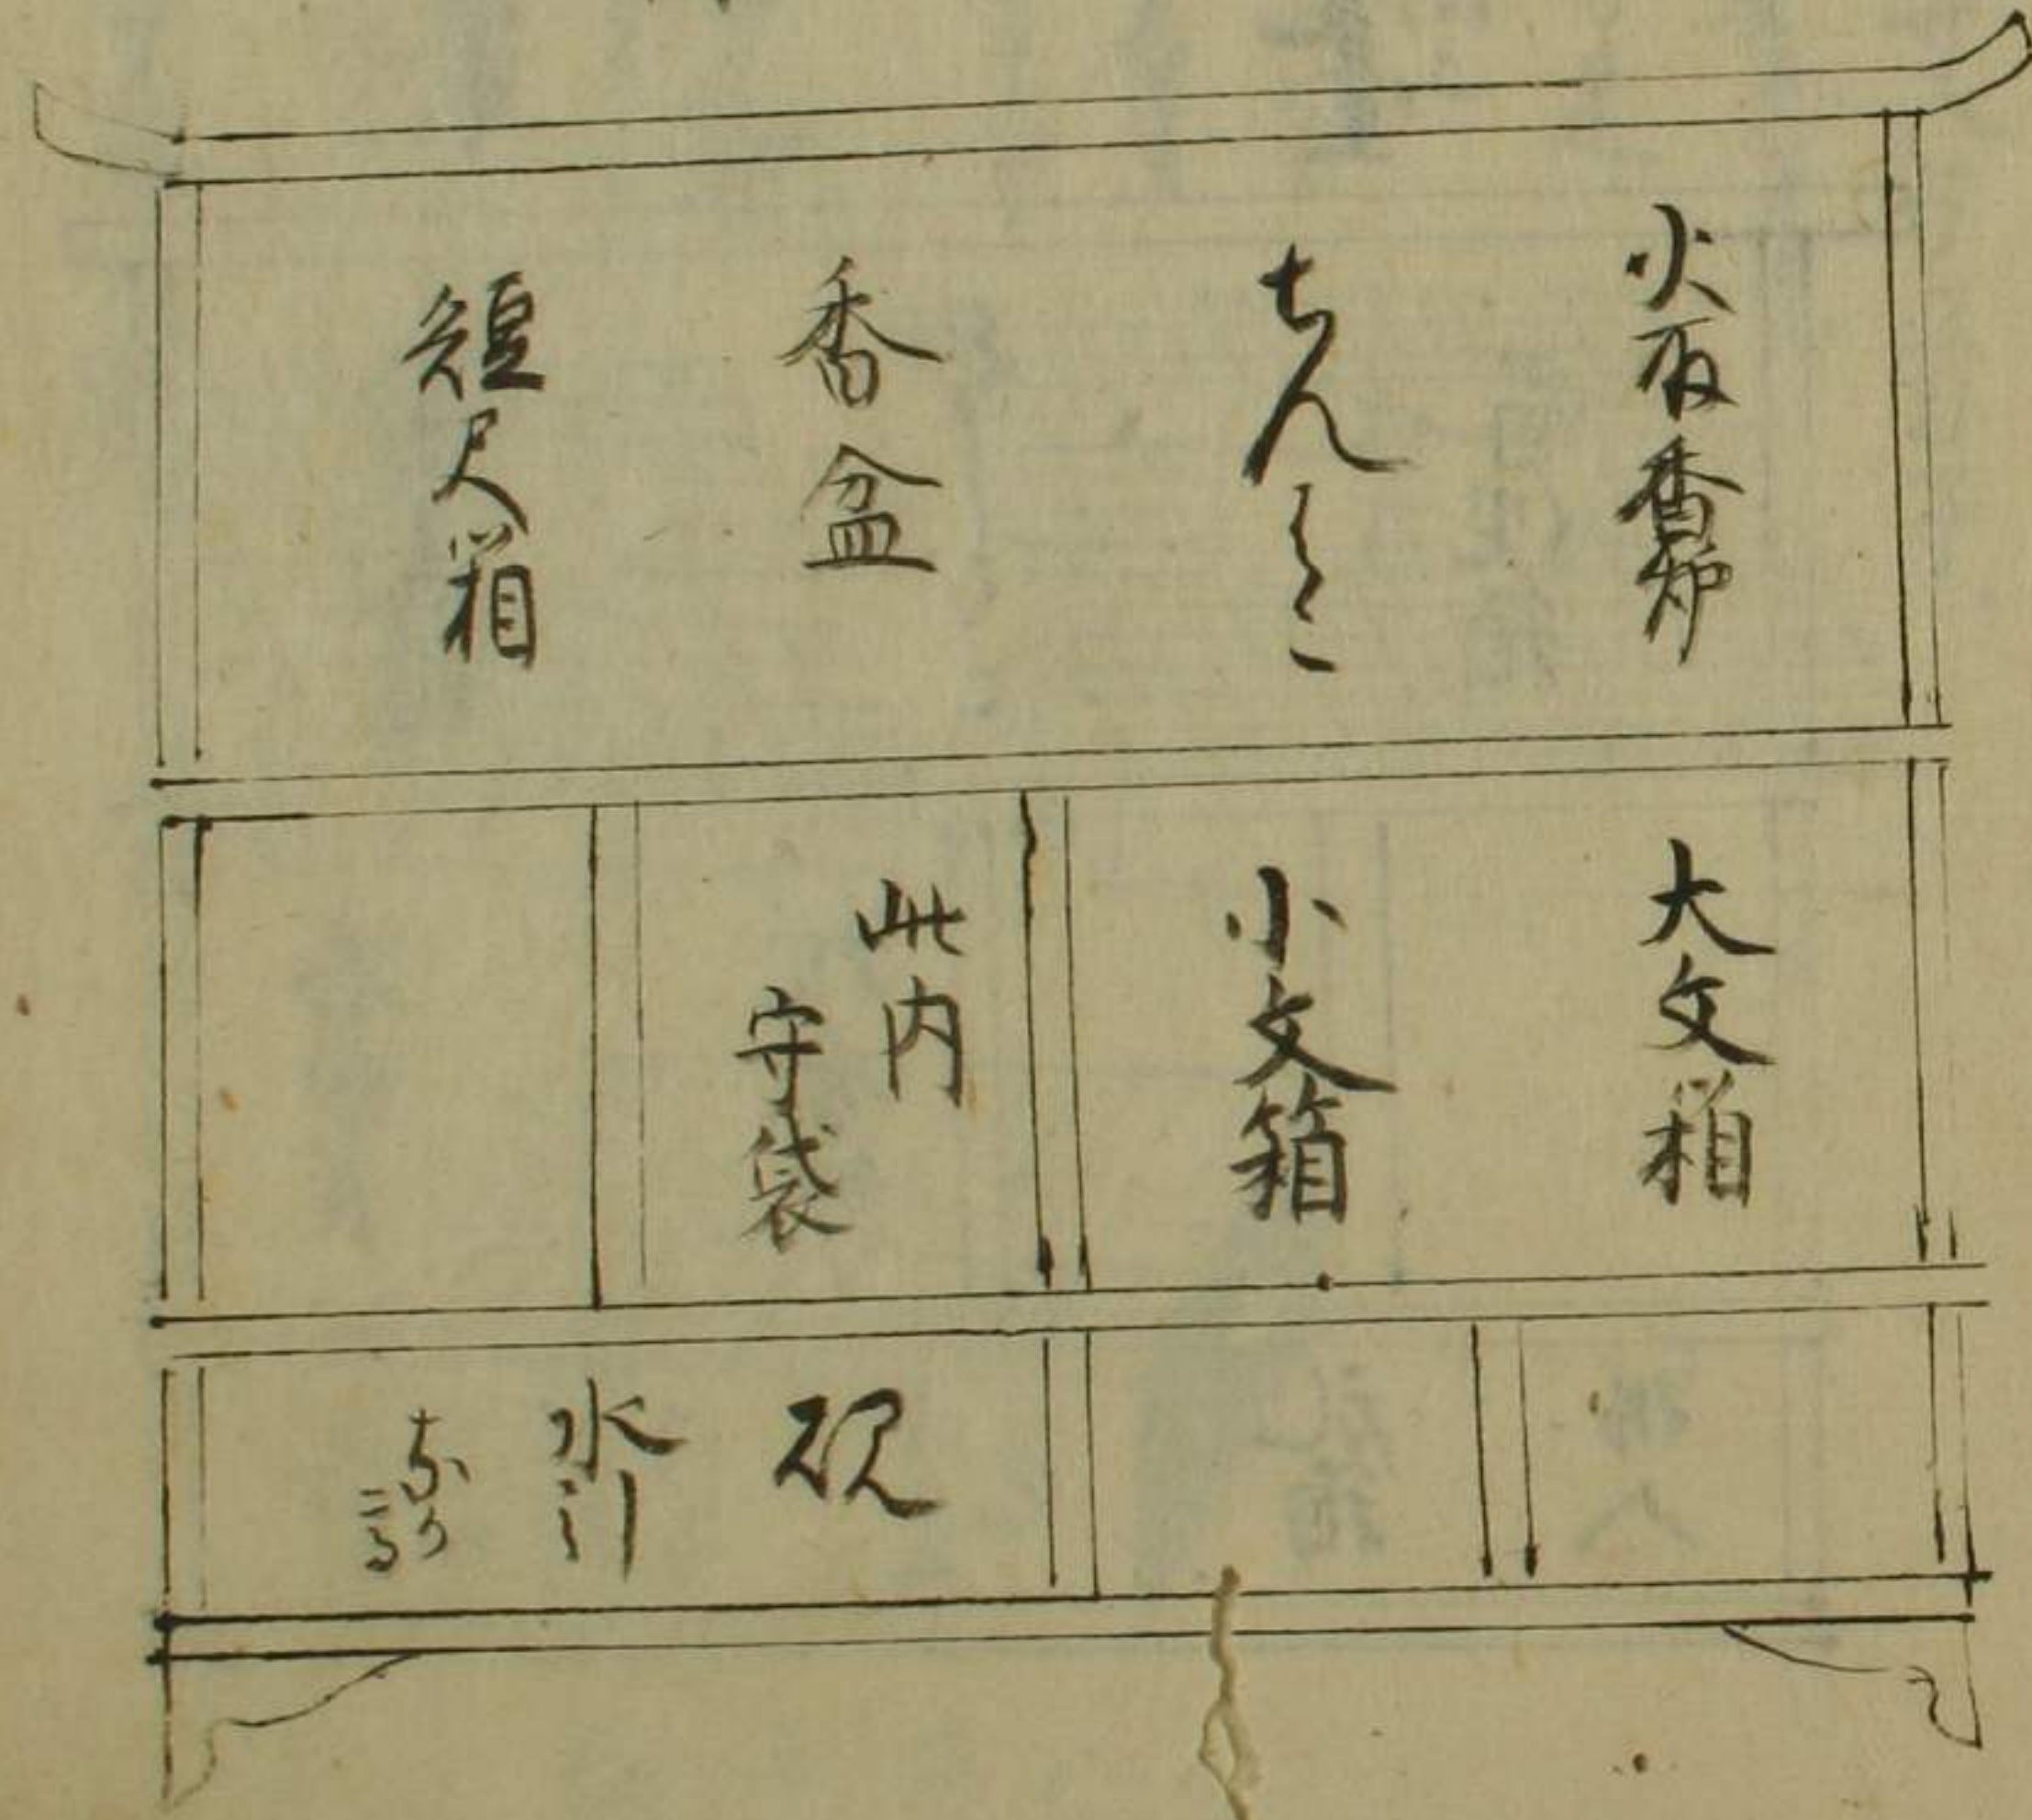 火取香炉
ちんはこ
香盆
短尺箱
大文箱
小文箱
此内
守袋
硯
水引